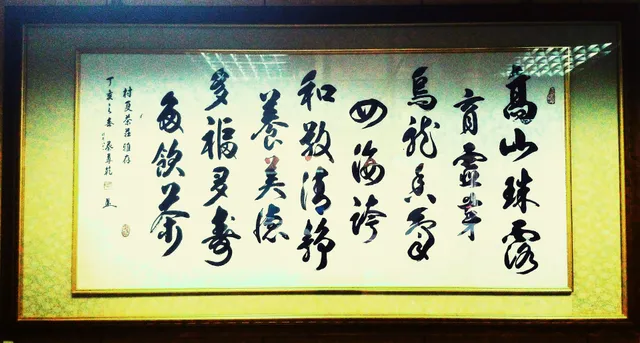 高山珠露
育靈芽
烏龍香氣
四海誇
和敬清靜
養美德
多福多壽
每飲茶
村夏茶莊雅存
丁亥之春